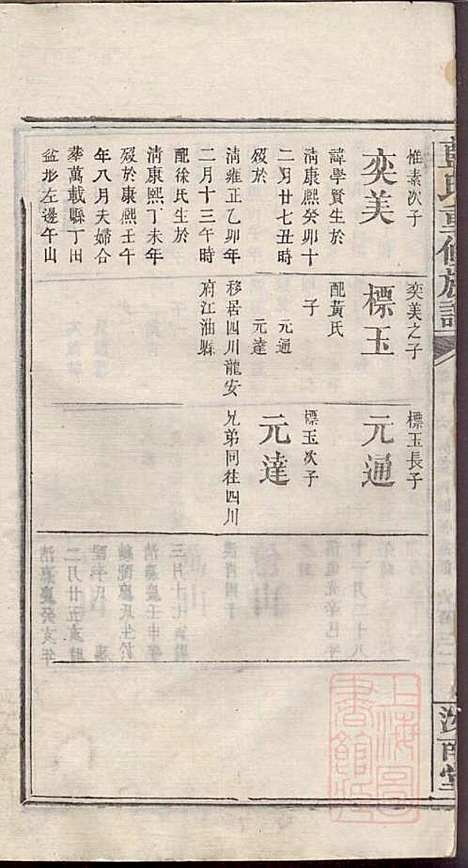 惟素次子
奕美
諱學賢生於
清康熙癸卯十
二月廿七丑時
歿於
清雍正乙卯年
二月十三午時
配徐氏生於
清康熙丁未年
歿於康熙壬午
年八月夫婦合
葬萬載縣丁田
盆形左邊午山
奕美之子
標玉
配黃氏
子
元通
元達
移居四川龍安
府江油縣
標玉長子
元通
標玉次子
元達
兄弟同往四川
氏重修族譜
堂
上海圖
書館藏